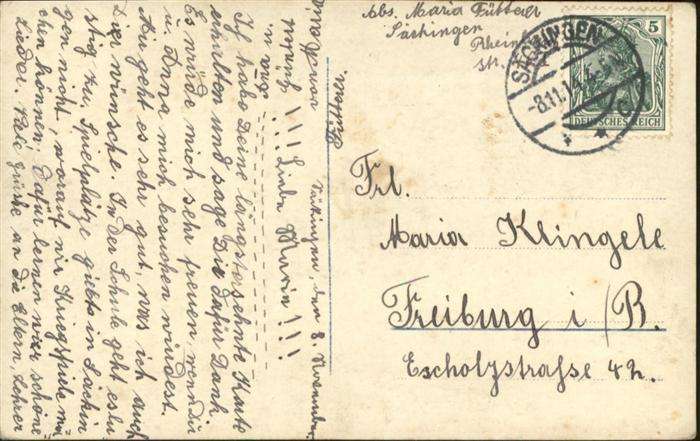 Abs. Maria Fütterer
Säckingen
Rhein
str.
SÄCKINGEN
-8.11.1
C
5
DEUTSCHES REICH
Frl.
Maria Klingele
Freiburg i/B.
Escholzstrasse 42.
Säckingen, den 8. November
!!! Liebe Maria !!!
Ich habe Deine längstersehnte Karte
erhalten und sage Dir dafür Dank
Es würde mich sehr freuen wenn du
u. Anna mich besuchen würdest.
Mir geht es sehr gut, was ich auch
Dir wünsche. In der Schule geht es lu
stig zu. Spielplätze giebts in Säckin
gen nicht, worauf wir Kriegspiele ma
chen können. Dafür lernen wir schöne
Lieder. Viele Grüße an die Eltern, Lehrer